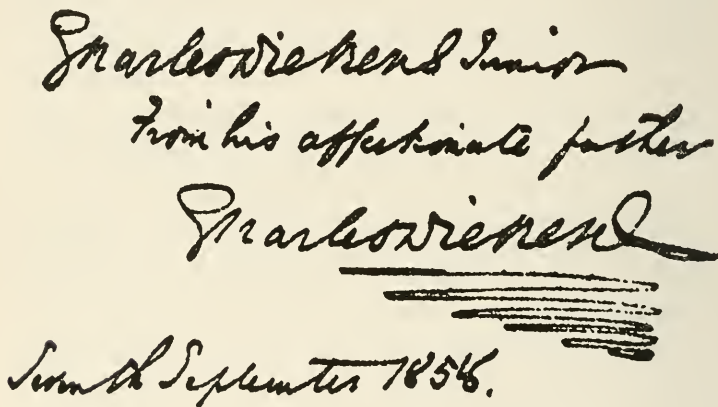 Charles Dickens Junior
From his affectionate father
Charles Dickens
Seventh September 1858.